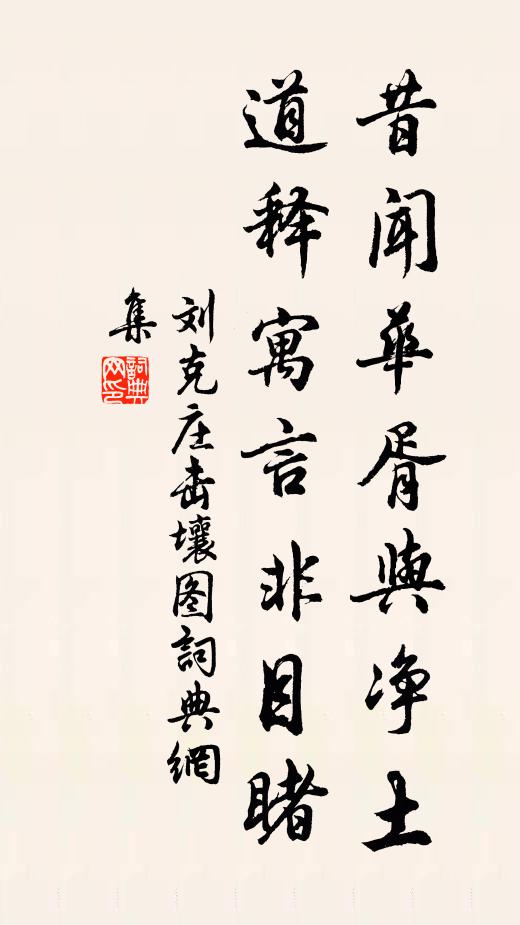 昔聞華胥與净土
道释寓言非目睹
刘克庄击壤图詞典網
集
詞典网印